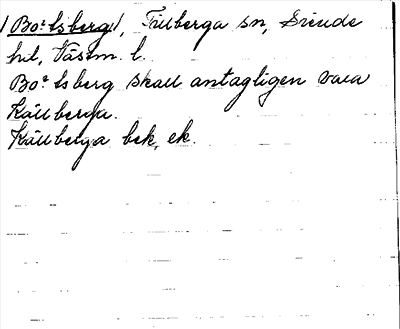 /Bo²ksberg/, Källberga sn, Siende
hd, Västm. l.
Bo²ksberg skall antagligen vara
Källberga.
Källberga bek, ek.